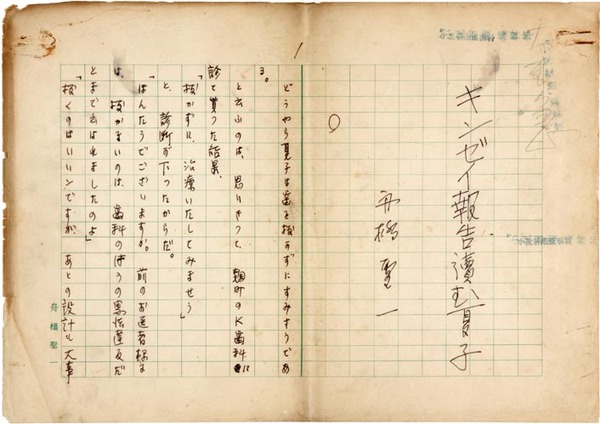 キンゼイ報告讀む夏子
舟橋聖一
どうやら夏子は歯を抜かずにすみそうであ
る。
と云ふのは、思いきって、麹町のK歯科に
診て貰つた結果、
「抜かずに、治療いたしてみませう」
と、診断が下つたからだ。
「ほんたうでございますか。前のお医者様は
は、抜かないのは、歯科のはうの憲法違反だ
とまで云はれましたのよ」
「抜くのはいいンですが、あとの設計も大事
舟橋聖一